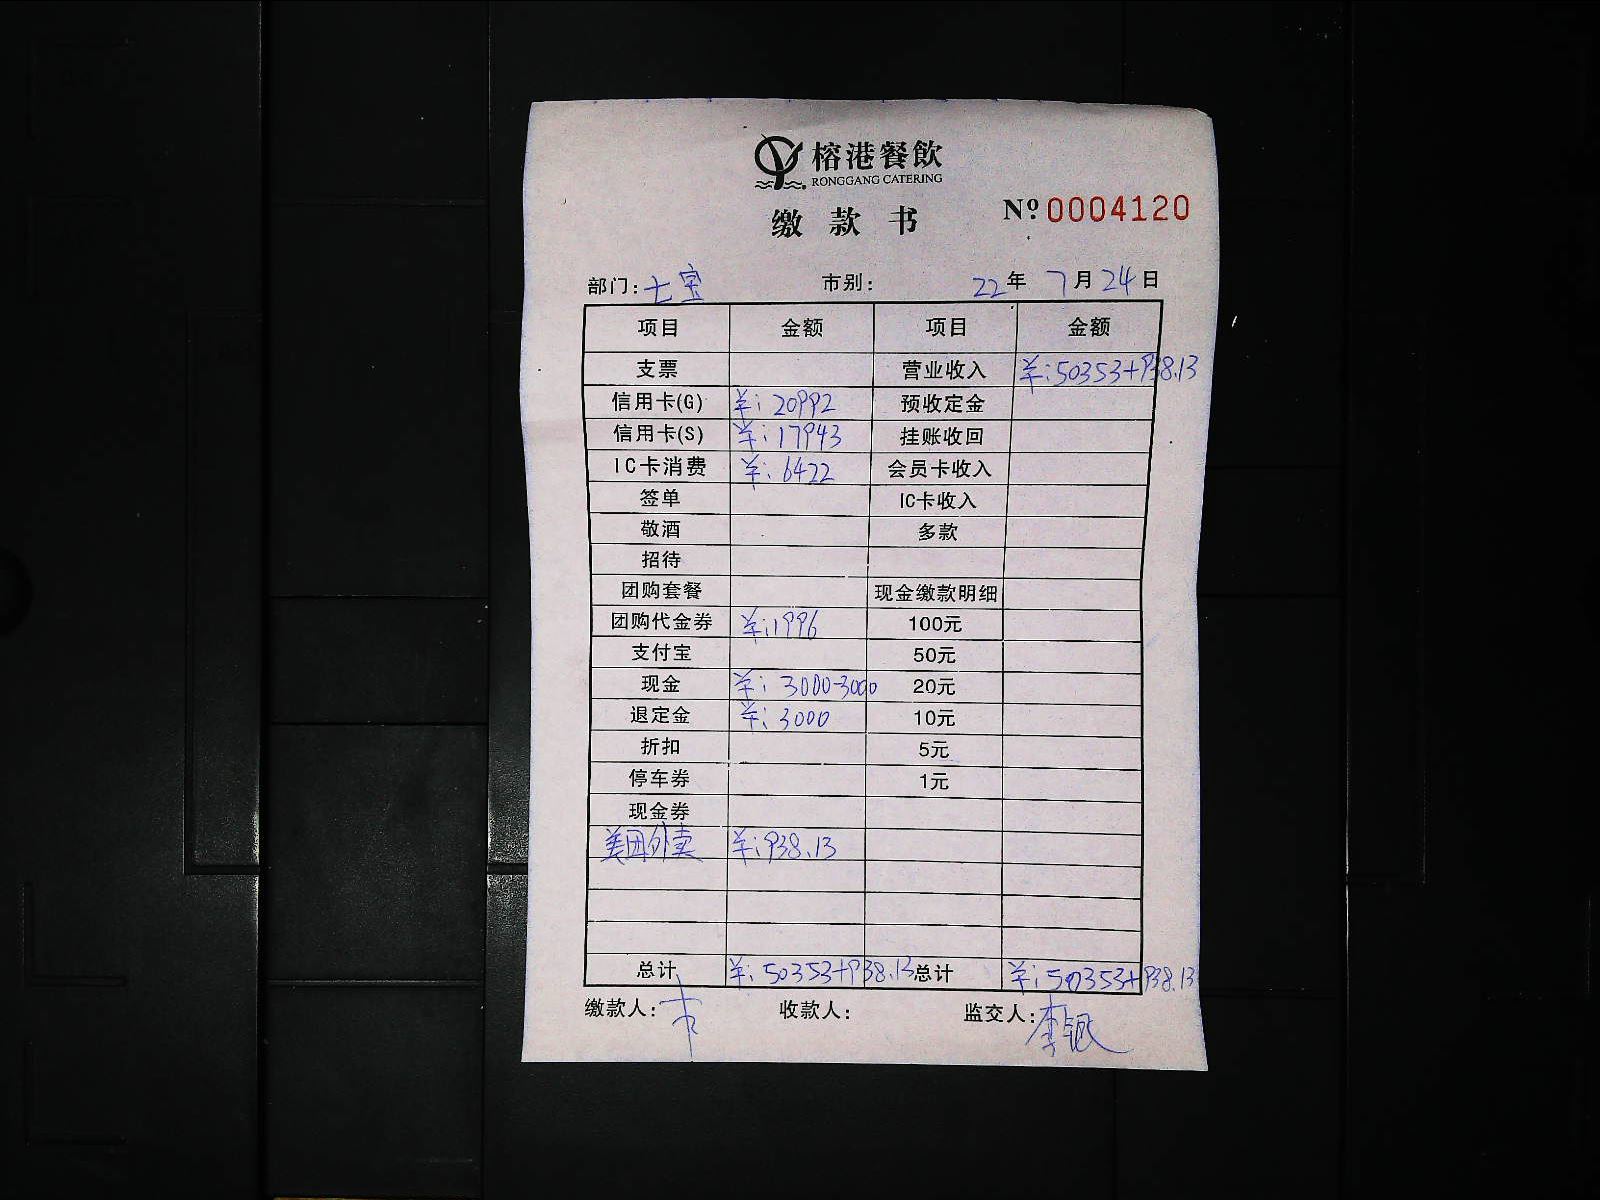 榕港餐飲
RONGGANG CATERING
缴款书 Nº 0004120
部门: 七宝 市别: 22年 7月 24日
项目 金额 项目 金额
支票 营业收入 ¥: 50353+938.13
信用卡(G) ¥: 20992 预收定金
信用卡(S) ¥: 17943 挂账收回
IC卡消费 ¥: 6422 会员卡收入
签单 IC卡收入
敬酒 多款
招待
团购套餐 现金缴款明细
团购代金券 ¥: 1996 100元
支付宝 50元
现金 ¥: 3000-3000 20元
退定金 ¥: 3000 10元
折扣 5元
停车券 1元
现金券
美团外卖 ¥: 938.13
总计 ¥: 50353+938.13 总计 ¥: 50353+938.13
缴款人: 收款人: 监交人: 李银